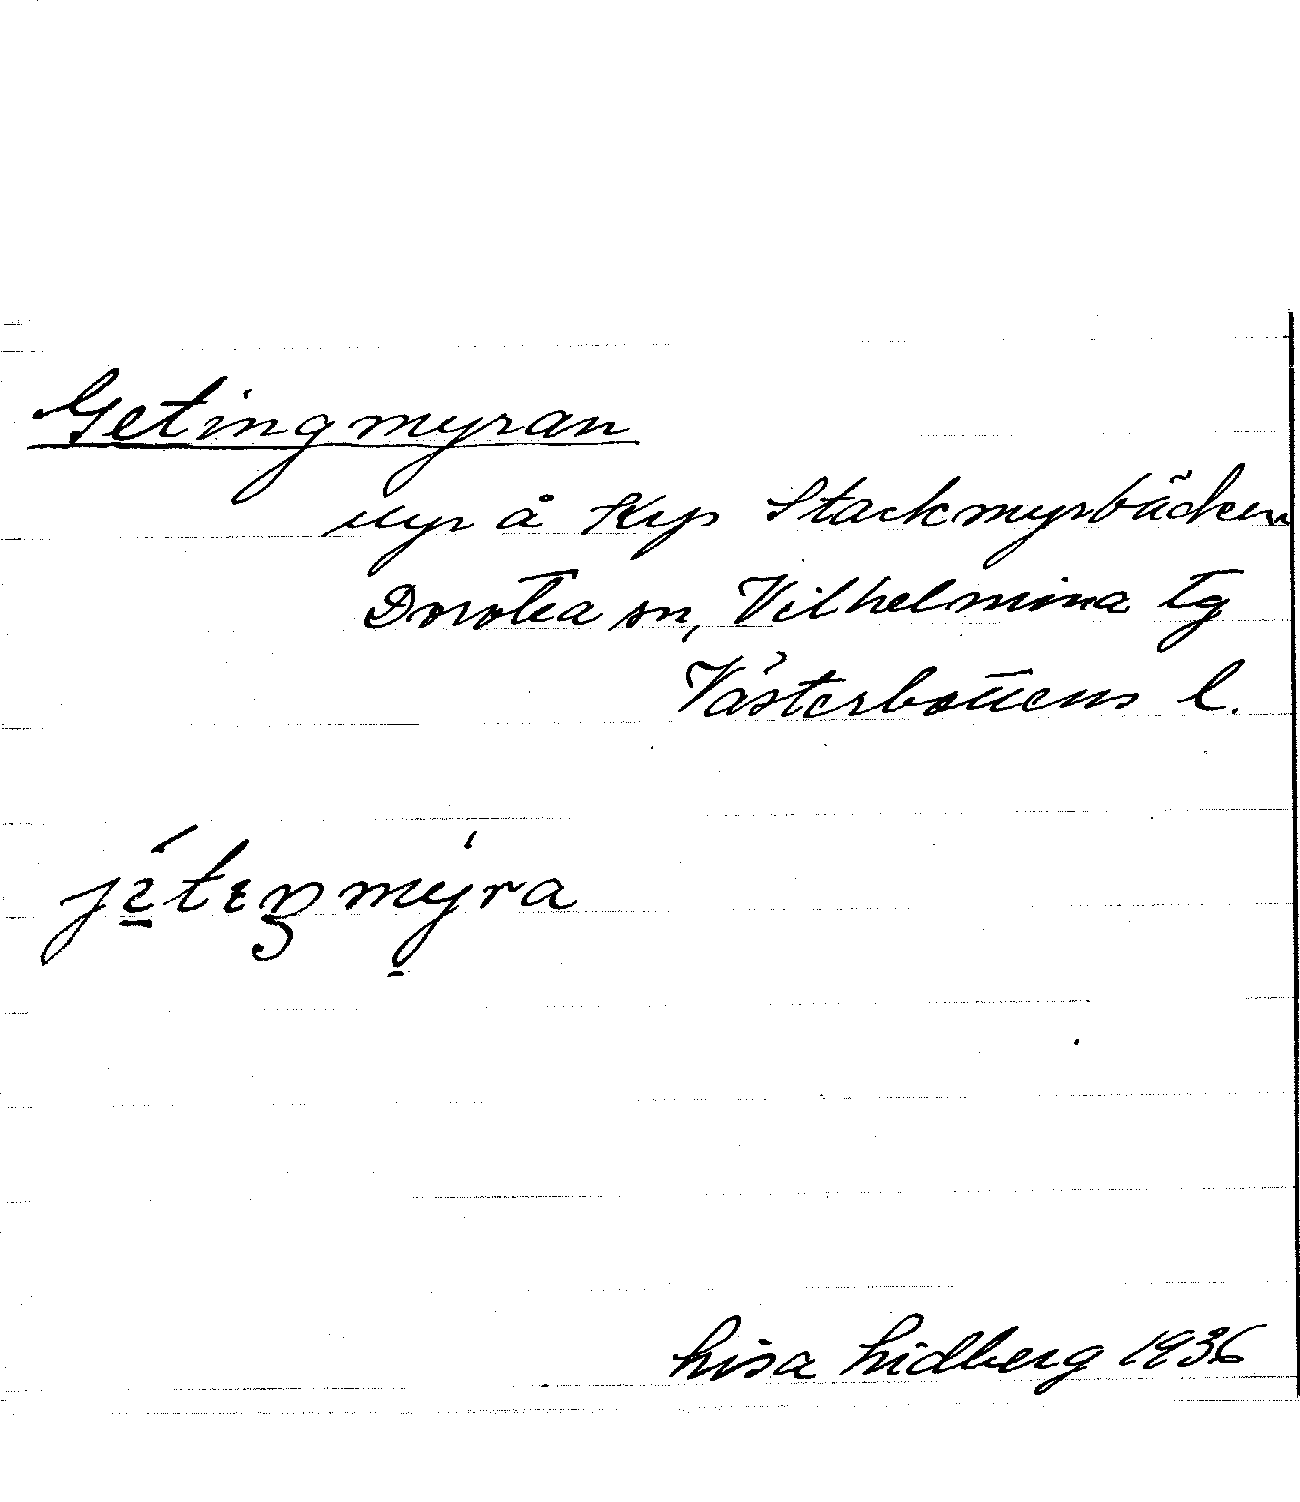 Getingmyran
myr å Krp Stackmyrbäcken
Dorotea sn, Vilhelmina tg
Västerbottens l.
Lisa Lidberg 1936